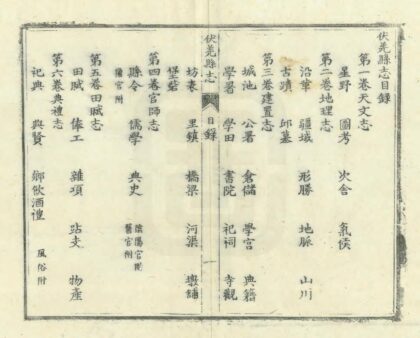 伏羌縣志目錄
第一卷天文志
星野 圖考 次舍 氣候
第二卷地理志
沿革 疆域 形勝 地脈 山川
古蹟 邱墓
第三卷建置志
城池 公署 倉儲 學宮 典籍
學署 學田 書院 祀祠 寺觀
伏羌縣志 目錄
坊表 里鎮 橋梁 河渠
堡寨
第四卷官師志
縣令 儒學 典史 陰陽官附 醫官附
第五卷田賦志
田賦 徭工 雜項 站支 物產
第六卷典禮志
祀典 與賢 鄉飲酒禮 風俗附